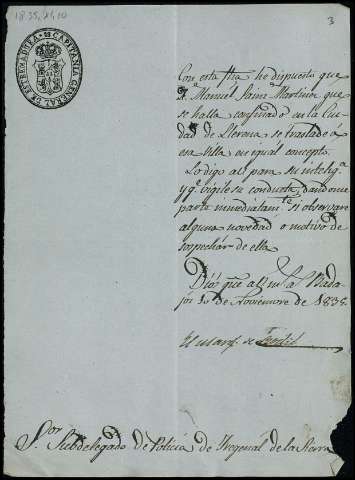 1835, 11, 10
3
CAPITANIA GENERAL DE ESTREMADURA
Con esta fha he dispuesto que
D. Manuel Sainz Martinez que
se halla confinado en la Ciu
dad de Llerena se traslade á
esa Villa en igual concepto.
Lo digo a V. para su intelig.ª
y q.e vigile su conducta, dandome
parte inmediatam.te si observare
alguna novedad o motivo de
sospechár de ella.
Dios gue a V. m.s a.s Bada
joz 10 de Noviembre de 1835.
El Marq.s de
S.or Subdelegado de Policia de Fregenal de la Sierra